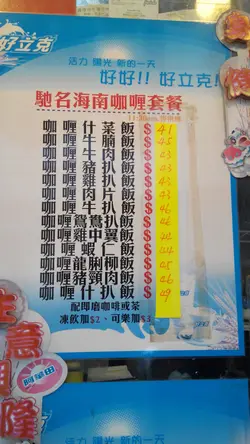 好立克
活力 陽光 新的一天
好好!! 好立克!
馳名海南咖喱套餐
咖喱什菜飯 $ 41
咖喱牛腩飯 $ 45
咖喱牛肉飯 $ 43
咖喱豬扒飯 $ 43
咖喱雞扒飯 $ 43
咖喱肉片飯 $ 43
咖喱牛扒飯 $ 46
咖喱鴛鴦扒飯 $ 46
咖喱雞中翼飯 $
咖喱蝦仁飯 $ 44
咖喱龍脷柳飯 $ 45
咖喱豬頸肉飯 $ 46
咖喱什扒飯 $ 49
配即磨咖啡或茶
凍飲加$2、可樂加$3
生意興隆
阿華田
活力 陽光 新的一天